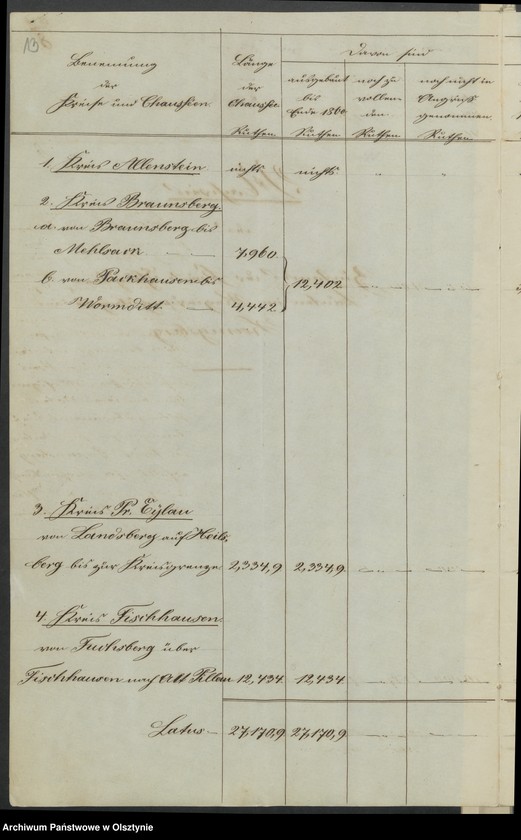 13
Benennung
der
Kreise und Chausseen
Länge
der
Chaussee.
Ruthen.
Davon sind
ausgebaut
bis
Ende 1860
Ruthen
noch zu
vollen-
den.
Ruthen.
noch nicht in
Angriff
genommen.
Ruthen.
1. Kreis Allenstein nichts nichts. " "
2. Kreis Braunsberg.
a. von Braunsberg bis
Mehlsack — 7,960.
12,402
b. von Packhausen bis
Wormditt. — 4,442
3. Kreis Pr. Eylau
von Landsberg auf Heils-
berg bis zur Kreisgrenze 2,334,9 2,334,9
4. Kreis Fischhausen.
von Fuchsberg über
Fischhausen nach Alt Pillau 12,434. 12,434
Latus — 27,170,9 27,170,9
Archiwum Państwowe w Olsztynie